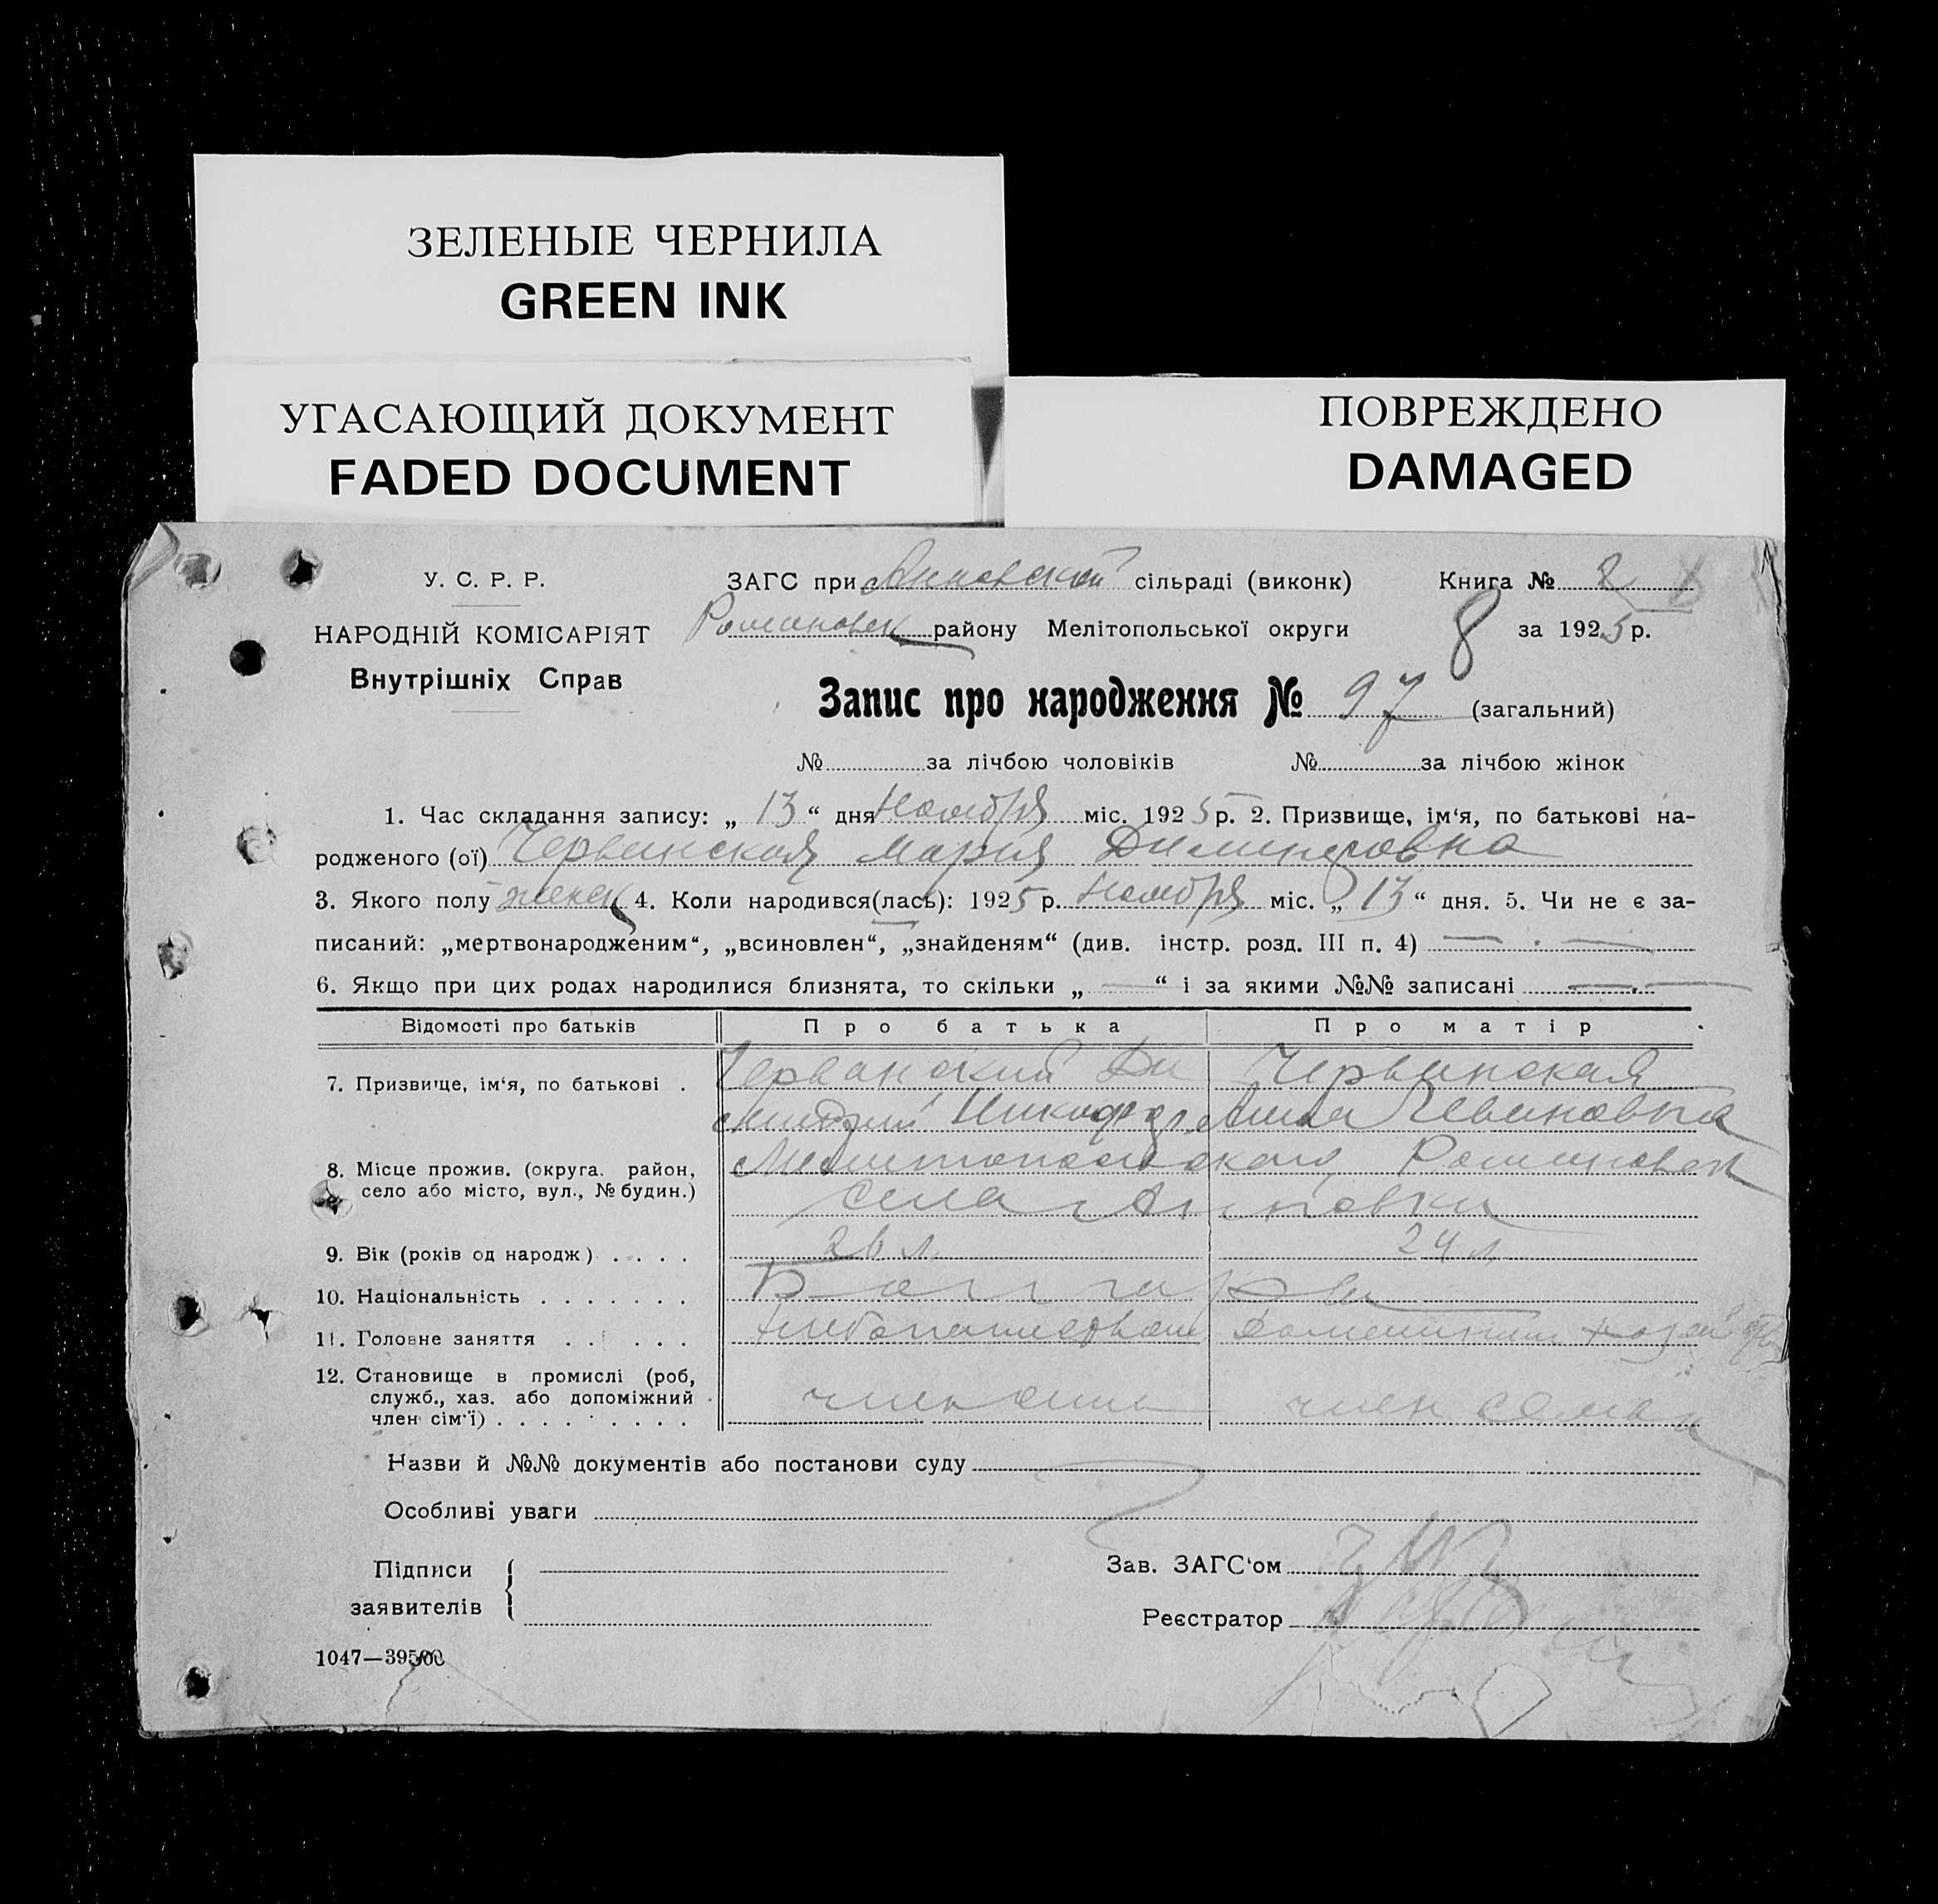 ЗЕЛЕНЫЕ ЧЕРНИЛА
GREEN INK
УГАСАЮЩИЙ ДОКУМЕНТ
FADED DOCUMENT
ПОВРЕЖДЕНО
DAMAGED
У. С. Р. Р.
НАРОДНІЙ КОМІСАРІЯТ
Внутрішніх Справ
ЗАГС при Анновской сільраді (виконк)
Романовск району Мелітопольської округи
Книга № 2
8 за 1925 р.
Запис про народження № 97 (загальний)
№ за лічбою чоловіків № за лічбою жінок
1. Час складання запису: „ 13 “ дня Ноября міс. 1925 р. 2. Призвище, ім‘я, по батькові на-
родженого (ої) Червинская Мария Димитровна
3. Якого полу женск 4. Коли народився(лась): 1925 р. Ноября міс. „ 13 “ дня. 5. Чи не є за-
писаний: „мертвонародженим“, „всиновлен“, „знайденям“ (див. інстр. розд. III п. 4) —
6. Якщо при цих родах народилися близнята, то скільки „ — “ і за якими №№ записані —
Відомості про батьків Про батька Про матір
7. Призвище, ім‘я, по батькові . Червинский Ди Червинская
митрий Никифор. Анна Ивановна
8. Місце прожив. (округа. район, Мелитопольского, Романовск
село або місто, вул., № будин.) села Анновки
9. Вік (років од народж) . . . . 26 л. 24 л.
10. Національність . . . . . . . Болгары
11. Головне заняття . . . . . хлебопашеством домашним
12. Становище в промислі (роб,
служб., хаз. або допоміжний
член сім‘ї) . . . . . . . . . член семьи член семьи
Назви й №№ документів або постанови суду
Особливі уваги
Підписи
заявителів
Зав. ЗАГС‘ом
Реєстратор
1047—39500